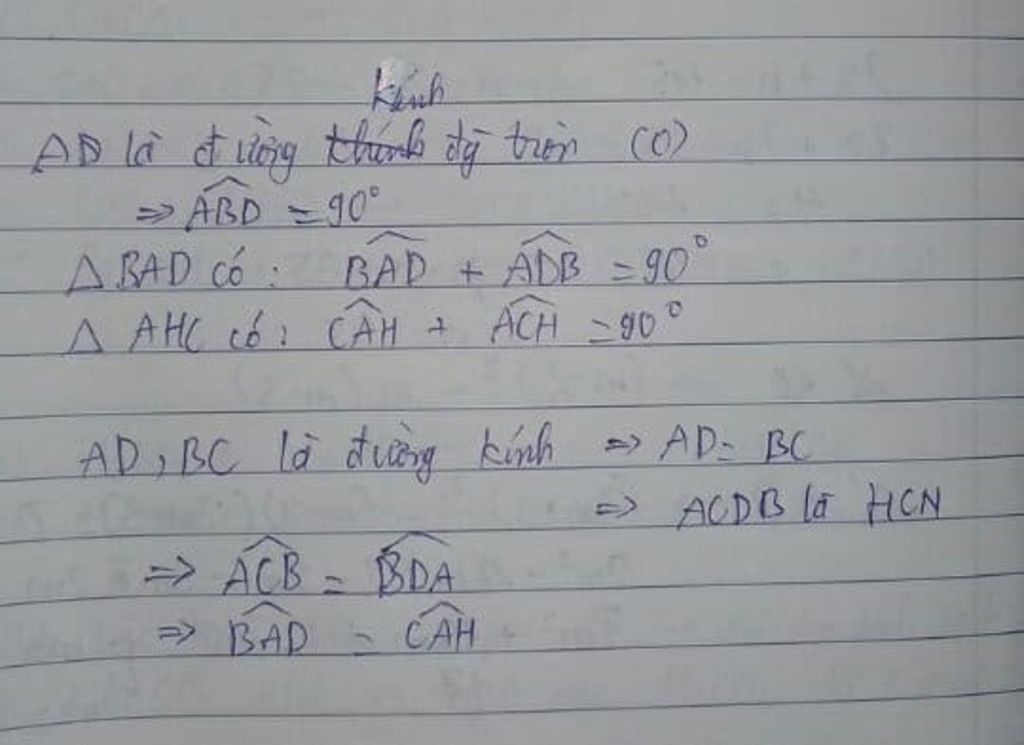 kính
AD là đường thính đg tròn (O)
⇒ $\widehat{ABD}$ = 90°
Δ BAD có: $\widehat{BAD}$ + $\widehat{ADB}$ = 90°
Δ AHC có: $\widehat{CAH}$ + $\widehat{ACH}$ = 90°
AD, BC là đường kính ⇒ AD = BC
⇒ ACDB là HCN
⇒ $\widehat{ACB}$ = $\widehat{BDA}$
⇒ $\widehat{BAD}$ = $\widehat{CAH}$